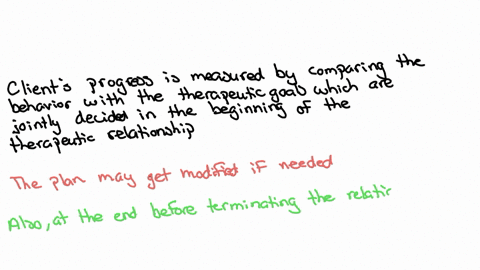 Client's progress is measured by comparing the
behavior with the therapeutic goals which are
jointly decided in the beginning of the
therapeutic relationship
The plan may get modified if needed
Also, at the end before terminating the relatir